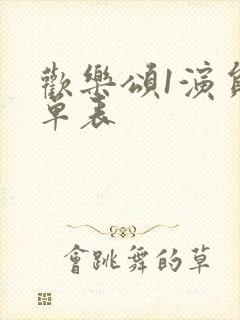 歡樂頌1演員
單表
會跳舞的草